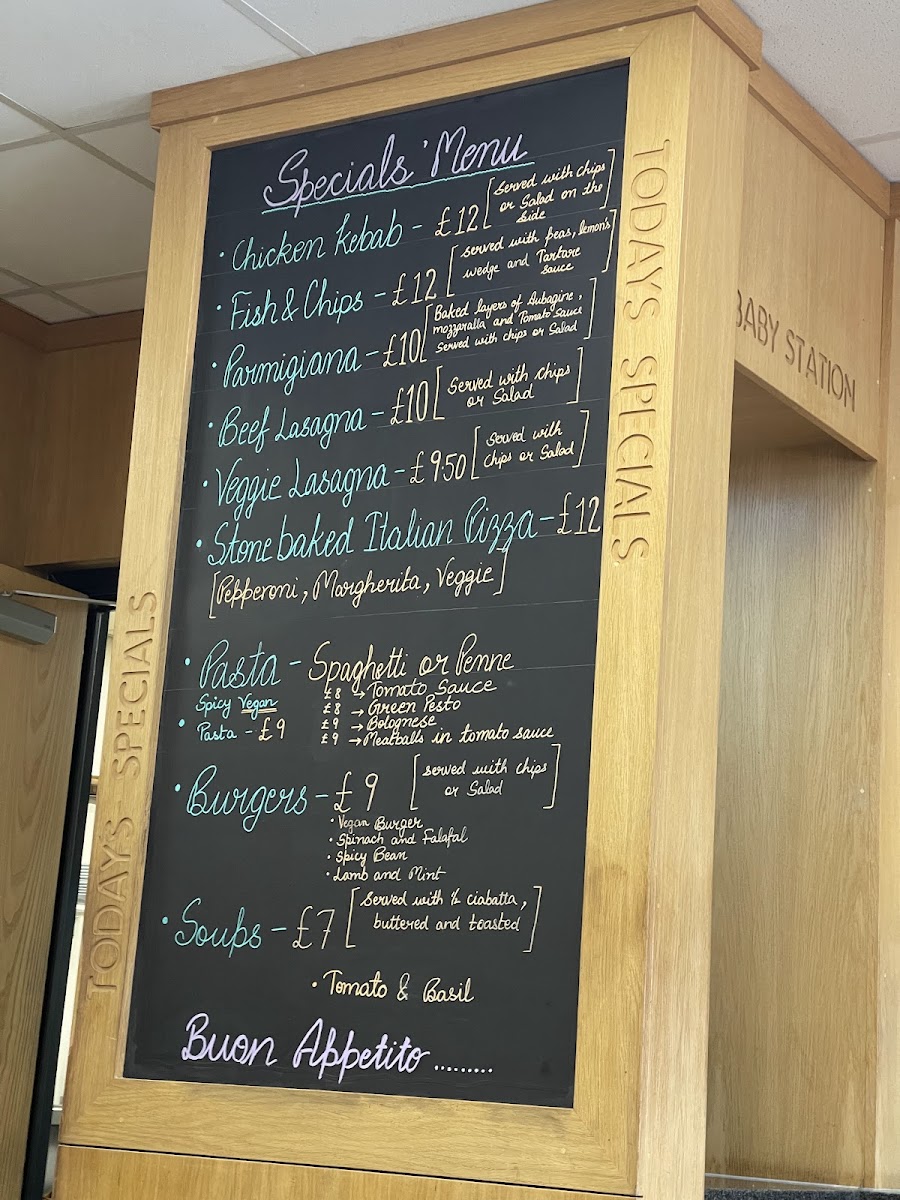 Specials' Menu
• Chicken Kebab - £12 [Served with chips
or Salad on the
side]
• Fish & Chips - £12 [Served with peas, lemon's
wedge and Tartare
sauce]
• Parmigiana - £10 [Baked layers of Aubagine,
mozzaralla and Tomato Sauce
Served with chips or Salad]
• Beef Lasagna - £10 [Served with chips
or Salad]
• Veggie Lasagna - £9.50 [Served with
chips or Salad]
• Stone baked Italian Pizza - £12
[Pepperoni, Margherita, Veggie]
• Pasta - Spaghetti or Penne
£8 → Tomato Sauce
£8 → Green Pesto
£9 → Bolognese
£9 → Meatballs in tomato sauce
Spicy Vegan
• Pasta - £9
• Burgers - £9 [served with chips
or Salad]
• Vegan Burger
• Spinach and Falafal
• Spicy Bean
• Lamb and Mint
• Soups - £7 [Served with ½ ciabatta,
buttered and toasted]
• Tomato & Basil
Buon Appetito .........
TODAYS SPECIALS
TODAYS SPECIALS
BABY STATION